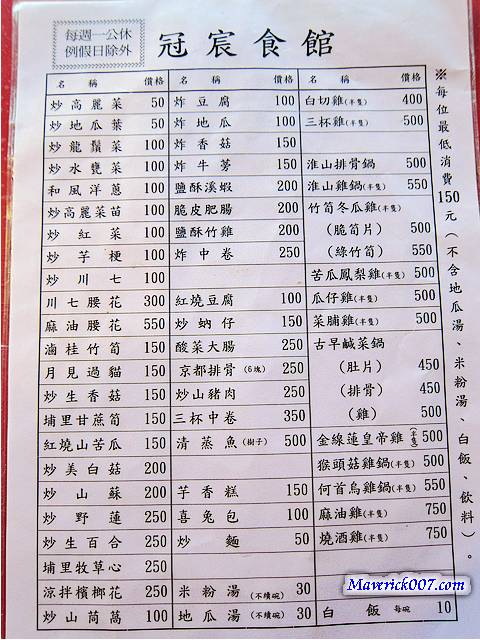 每週一公休
例假日除外
冠宸食館
名稱 價格
炒高麗菜 50
炒地瓜葉 50
炒龍鬚菜 100
炒水甕菜 100
和風洋蔥 100
炒高麗菜苗 100
炒紅菜 100
炒芋梗 100
炒川七 100
川七腰花 300
麻油腰花 550
滷桂竹筍 150
月見過貓 150
炒生香菇 150
埔里甘蔗筍 150
紅燒山苦瓜 150
炒美白菇 200
炒山蘇 200
炒野蓮 250
炒生百合 250
埔里牧草心 250
涼拌檳榔花 250
炒山茼萵 100
名稱 價格
炸豆腐 100
炸地瓜 100
炸香菇 150
炸牛蒡 150
鹽酥溪蝦 200
脆皮肥腸 200
鹽酥竹雞 200
炸中卷 250
紅燒豆腐 100
炒蚋仔 150
酸菜大腸 250
京都排骨(6塊) 250
炒山豬肉 250
三杯中卷 350
清蒸魚(樹子) 500
芋香糕 150
喜兔包 100
炒麵 50
米粉湯(不續碗) 30
地瓜湯(不續碗) 30
名稱 價格
白切雞(半隻) 400
三杯雞(半隻) 500
淮山排骨鍋 500
淮山雞鍋(半隻) 550
竹筍冬瓜雞(半隻)
(脆筍片) 500
(綠竹筍) 550
苦瓜鳳梨雞(半隻) 500
瓜仔雞(半隻) 500
菜脯雞(半隻) 500
古早鹹菜鍋
(肚片) 450
(排骨) 450
(雞) 500
金線蓮皇帝雞(半隻) 500
猴頭菇雞鍋(半隻) 500
何首烏雞鍋(半隻) 550
麻油雞(半隻) 750
燒酒雞(半隻) 750
白飯 每碗 10
※每位最低消費150元(不含地瓜湯、米粉湯、白飯、飲料)。
Maverick007.com